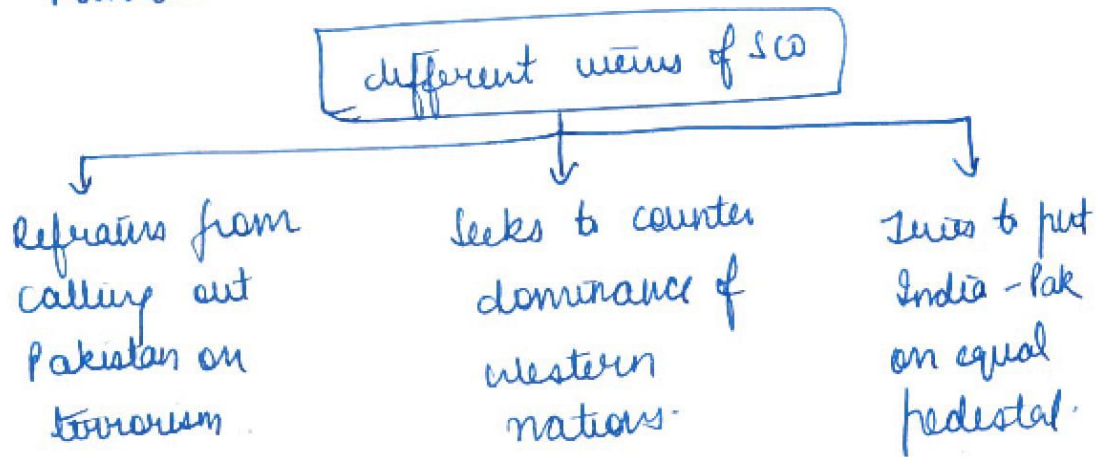 different views of SCO
Refrains from
calling out
Pakistan on
terrorism.
Seeks to counter
dominance of
western
nations.
Tries to put
India-Pak
on equal
pedestal.